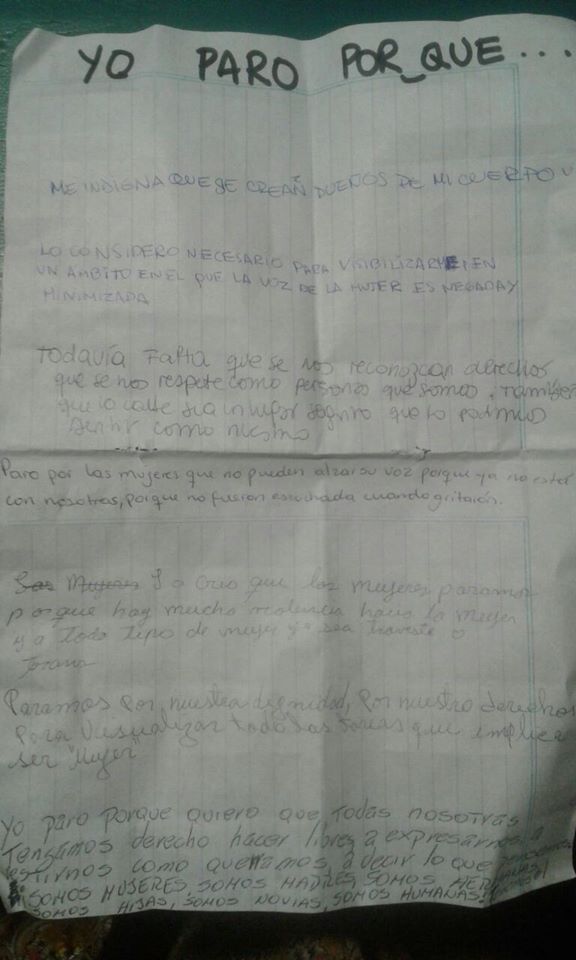 YO PARO POR_QUE...
ME INDIGNA QUE SE CREAÑ DUEÑOS DE MI CUERPO
LO CONSIDERO NECESARIO PARA VISIBILIZARME, EN
UN AMBITO EN EL QUE LA VOZ DE LA MUJER ES NEGADA Y
MINIMIZADA
TODAVÍA Falta que se nos reconozcan derechos
que se nos respete como personas que somos, También
que la calle sea un lugar seguro que lo podamos
sentir como nuestro
Paro por las mujeres que no pueden alzar su voz porque ya no están
con nosotras, porque no fueron escuchada cuando gritaron.
Las Mujeres Yo creo que las mujeres paramos
porque hay mucha violencia hacia la mujer
y a todo tipo de mujer ya sea traveste o
Trans
Paramos por nuestra dignidad, por nuestro derechos
Para visualizar todas las tareas que implica
ser "Mujer"
Yo paro porque quiero que todas nosotras
Tengamos derecho hacer libres a expresarnos, a
vestirnos como queramos, a decir lo que pensamos
SOMOS MUJERES, SOMOS MADRES, SOMOS HERMANAS,
SOMOS HIJAS, SOMOS NOVIAS, SOMOS HUMANAS